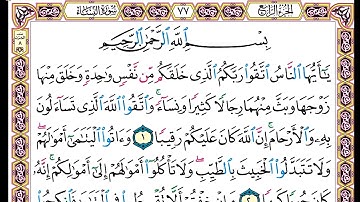 الجزء الرابع ٧٧ سورة النساء
بِسْمِ ٱللَّهِ ٱلرَّحْمَٰنِ ٱلرَّحِيمِ
يَٰٓأَيُّهَا ٱلنَّاسُ ٱتَّقُوا۟ رَبَّكُمُ ٱلَّذِى خَلَقَكُم مِّن نَّفْسٍ وَٰحِدَةٍ وَخَلَقَ مِنْهَا
زَوْجَهَا وَبَثَّ مِنْهُمَا رِجَالًا كَثِيرًا وَنِسَآءً ۚ وَٱتَّقُوا۟ ٱللَّهَ ٱلَّذِى تَسَآءَلُونَ
بِهِۦ وَٱلْأَرْحَامَ ۚ إِنَّ ٱللَّهَ كَانَ عَلَيْكُمْ رَقِيبًا ١ وَءَاتُوا۟ ٱلْيَتَٰمَىٰٓ أَمْوَٰلَهُمْ ۖ
وَلَا تَتَبَدَّلُوا۟ ٱلْخَبِيثَ بِٱلطَّيِّبِ ۖ وَلَا تَأْكُلُوٓا۟ أَمْوَٰلَهُمْ إِلَىٰٓ أَمْوَٰلِكُمْ ۚ إِنَّهُۥ
كَانَ حُوبًا كَبِيرًا ٢